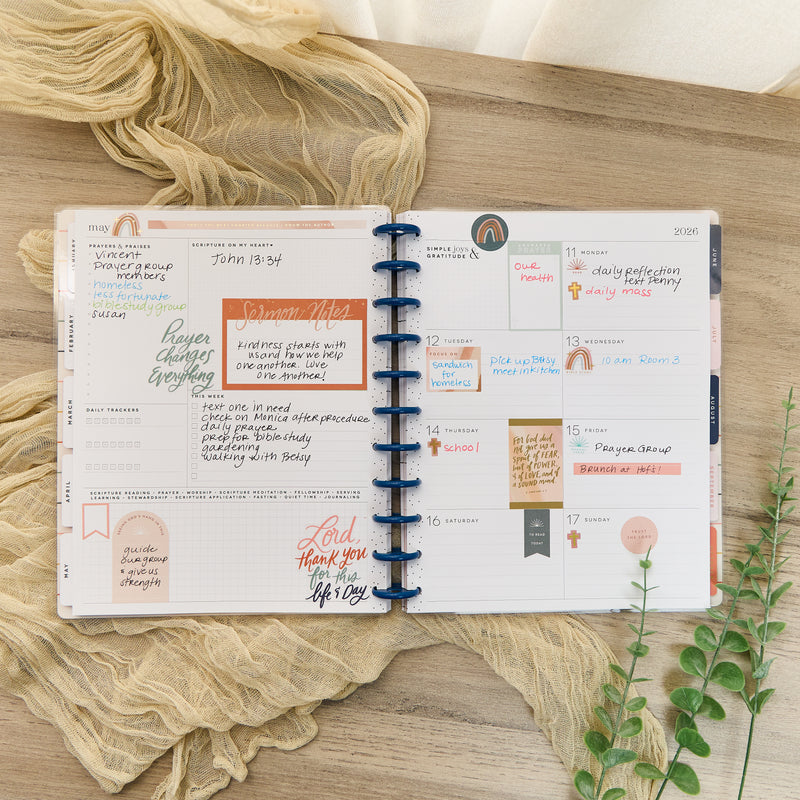 may
PRAYERS & PRAISES
Vincent
Prayer group
members
homeless
less fortunate
bible study group
susan
Prayer
Changes
Everything
SCRIPTURE ON MY HEART♥
John 13:34
Sermon Notes
kindness starts with
us and how we help
one another. Love
one Another!
DAILY TRACKERS
THIS WEEK
text one in need
check on Monica after procedure
daily prayer
prep for bible study
gardening
walking with Betsy
SCRIPTURE READING • PRAYER • WORSHIP • SCRIPTURE MEDITATION • FELLOWSHIP • SERVING
LEARNING • STEWARDSHIP • SCRIPTURE APPLICATION • FASTING • QUIET TIME • JOURNALING
guide
our group
& give us
strength
Lord,
thank you
for this
life & Day
JANUARY
FEBRUARY
MARCH
APRIL
MAY
SIMPLE joys
& GRATITUDE
Our
health
2026
11 MONDAY
daily reflection
text Penny
daily mass
12 TUESDAY
FOCUS ON
Sandwich
for
homeless
Pick up Betsy
meet in kitchen
13 WEDNESDAY
10 am Room 3
14 THURSDAY
school!
For God did
not give us a
spirit of FEAR,
but of POWER,
& of LOVE, and
of a SOUND MIND.
15 FRIDAY
Prayer Group
Brunch at Hof's!
16 SATURDAY
TO READ
TODAY
17 SUNDAY
TRUST
THE LORD
JUNE
JULY
AUGUST